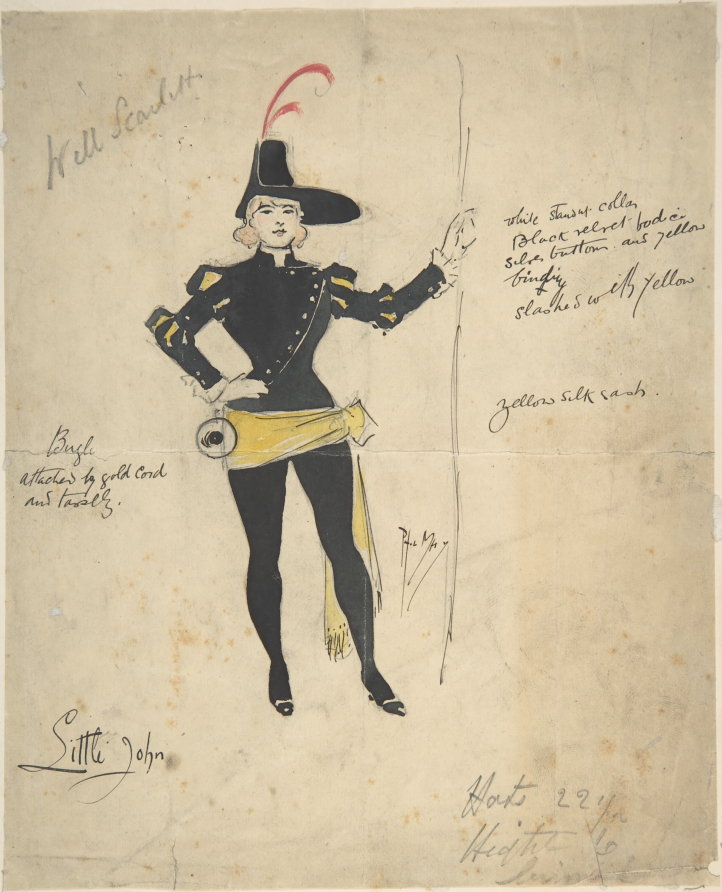 Will Scarlett
white stand up collar
Black velvet bodice
silver buttons and yellow
binding
slashed with yellow
yellow silk sash.
Bugle
attached by gold cord
and tassels.
Phil May
Little John
Hats 22 1/2
Hight 6